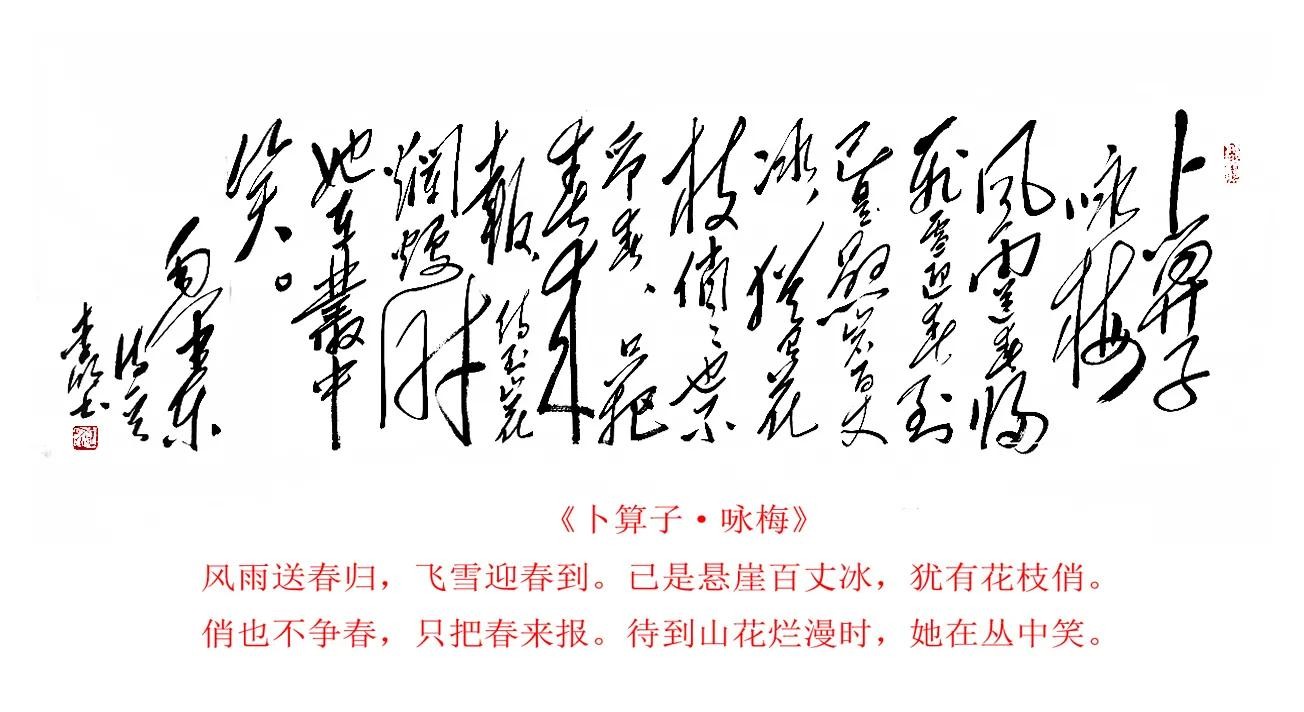 卜算子
咏梅
风雨送春归
飞雪迎春到
已是悬崖百丈
冰，犹有花
枝俏〻也不
争春、只把
春来
報、待到山花
爛熳时
她在叢中
笑。
《卜算子·咏梅》
风雨送春归，飞雪迎春到。已是悬崖百丈冰，犹有花枝俏。
俏也不争春，只把春来报。待到山花烂漫时，她在丛中笑。